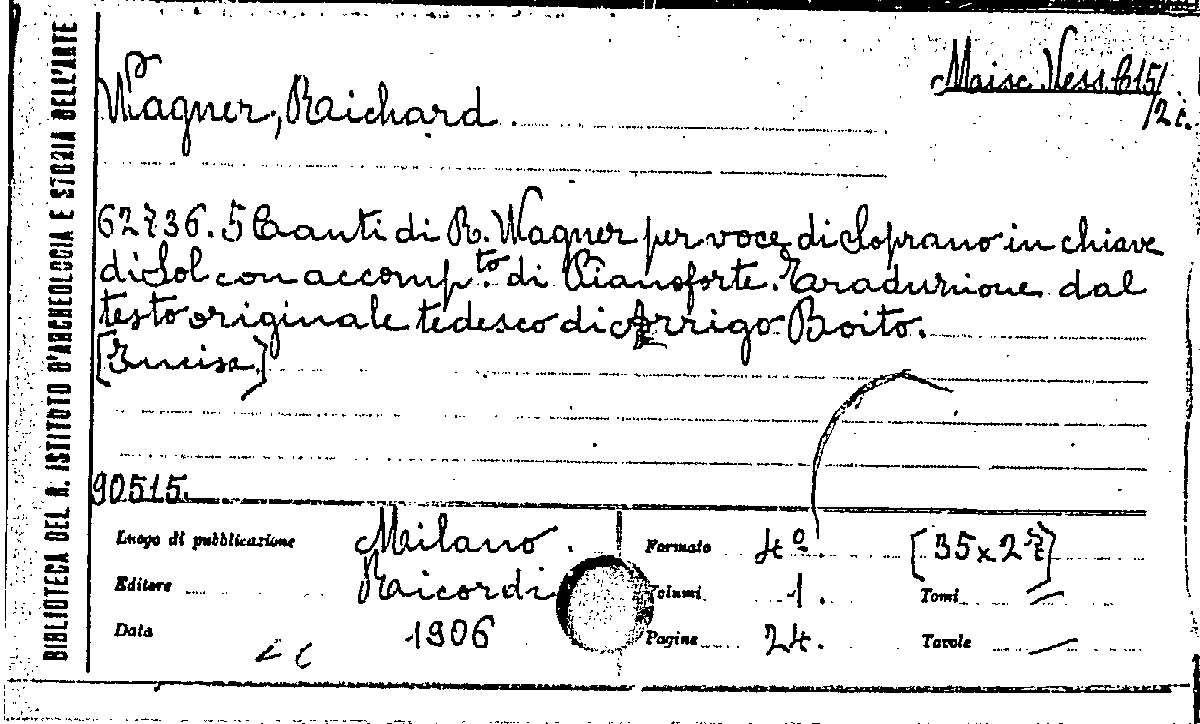 BIBLIOTECA DEL R. ISTITUTO D'ARCHEOLOGIA E STORIA DELL'ARTE
Wagner, Raichard.
Misc. Vess. C 15/
/2 c.
62736. 5 Canti di R. Wagner per voce di Soprano in chiave
di Sol con accomp.to di Pianoforte. Traduzione dal
testo originale tedesco di Arrigo Boito.
[Incisa.]
90515.
Luogo di pubblicazione Milano. Formato 4º. [35x27]
Editore Ricordi Volumi 1. Tomi —
Data 1906 Pagine 24. Tavole —